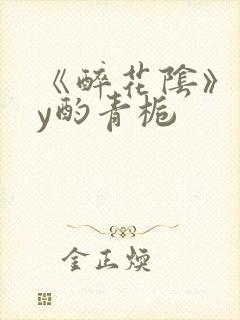 《醉花陰》
y酌青栀
金正焕